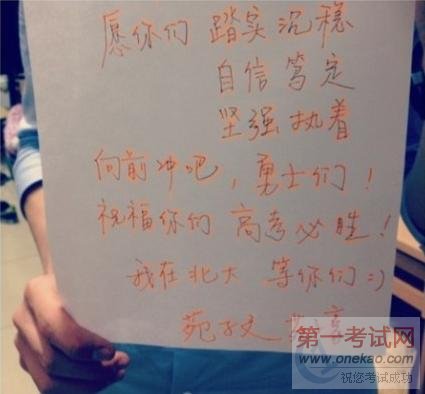 愿你们 踏实沉稳
自信笃定
坚强执着
向前冲吧，勇士们！
祝福你们 高考必胜！
我在北大 等你们 :)
苑子文
第一考试网
www.onekao.com
祝您考试成功